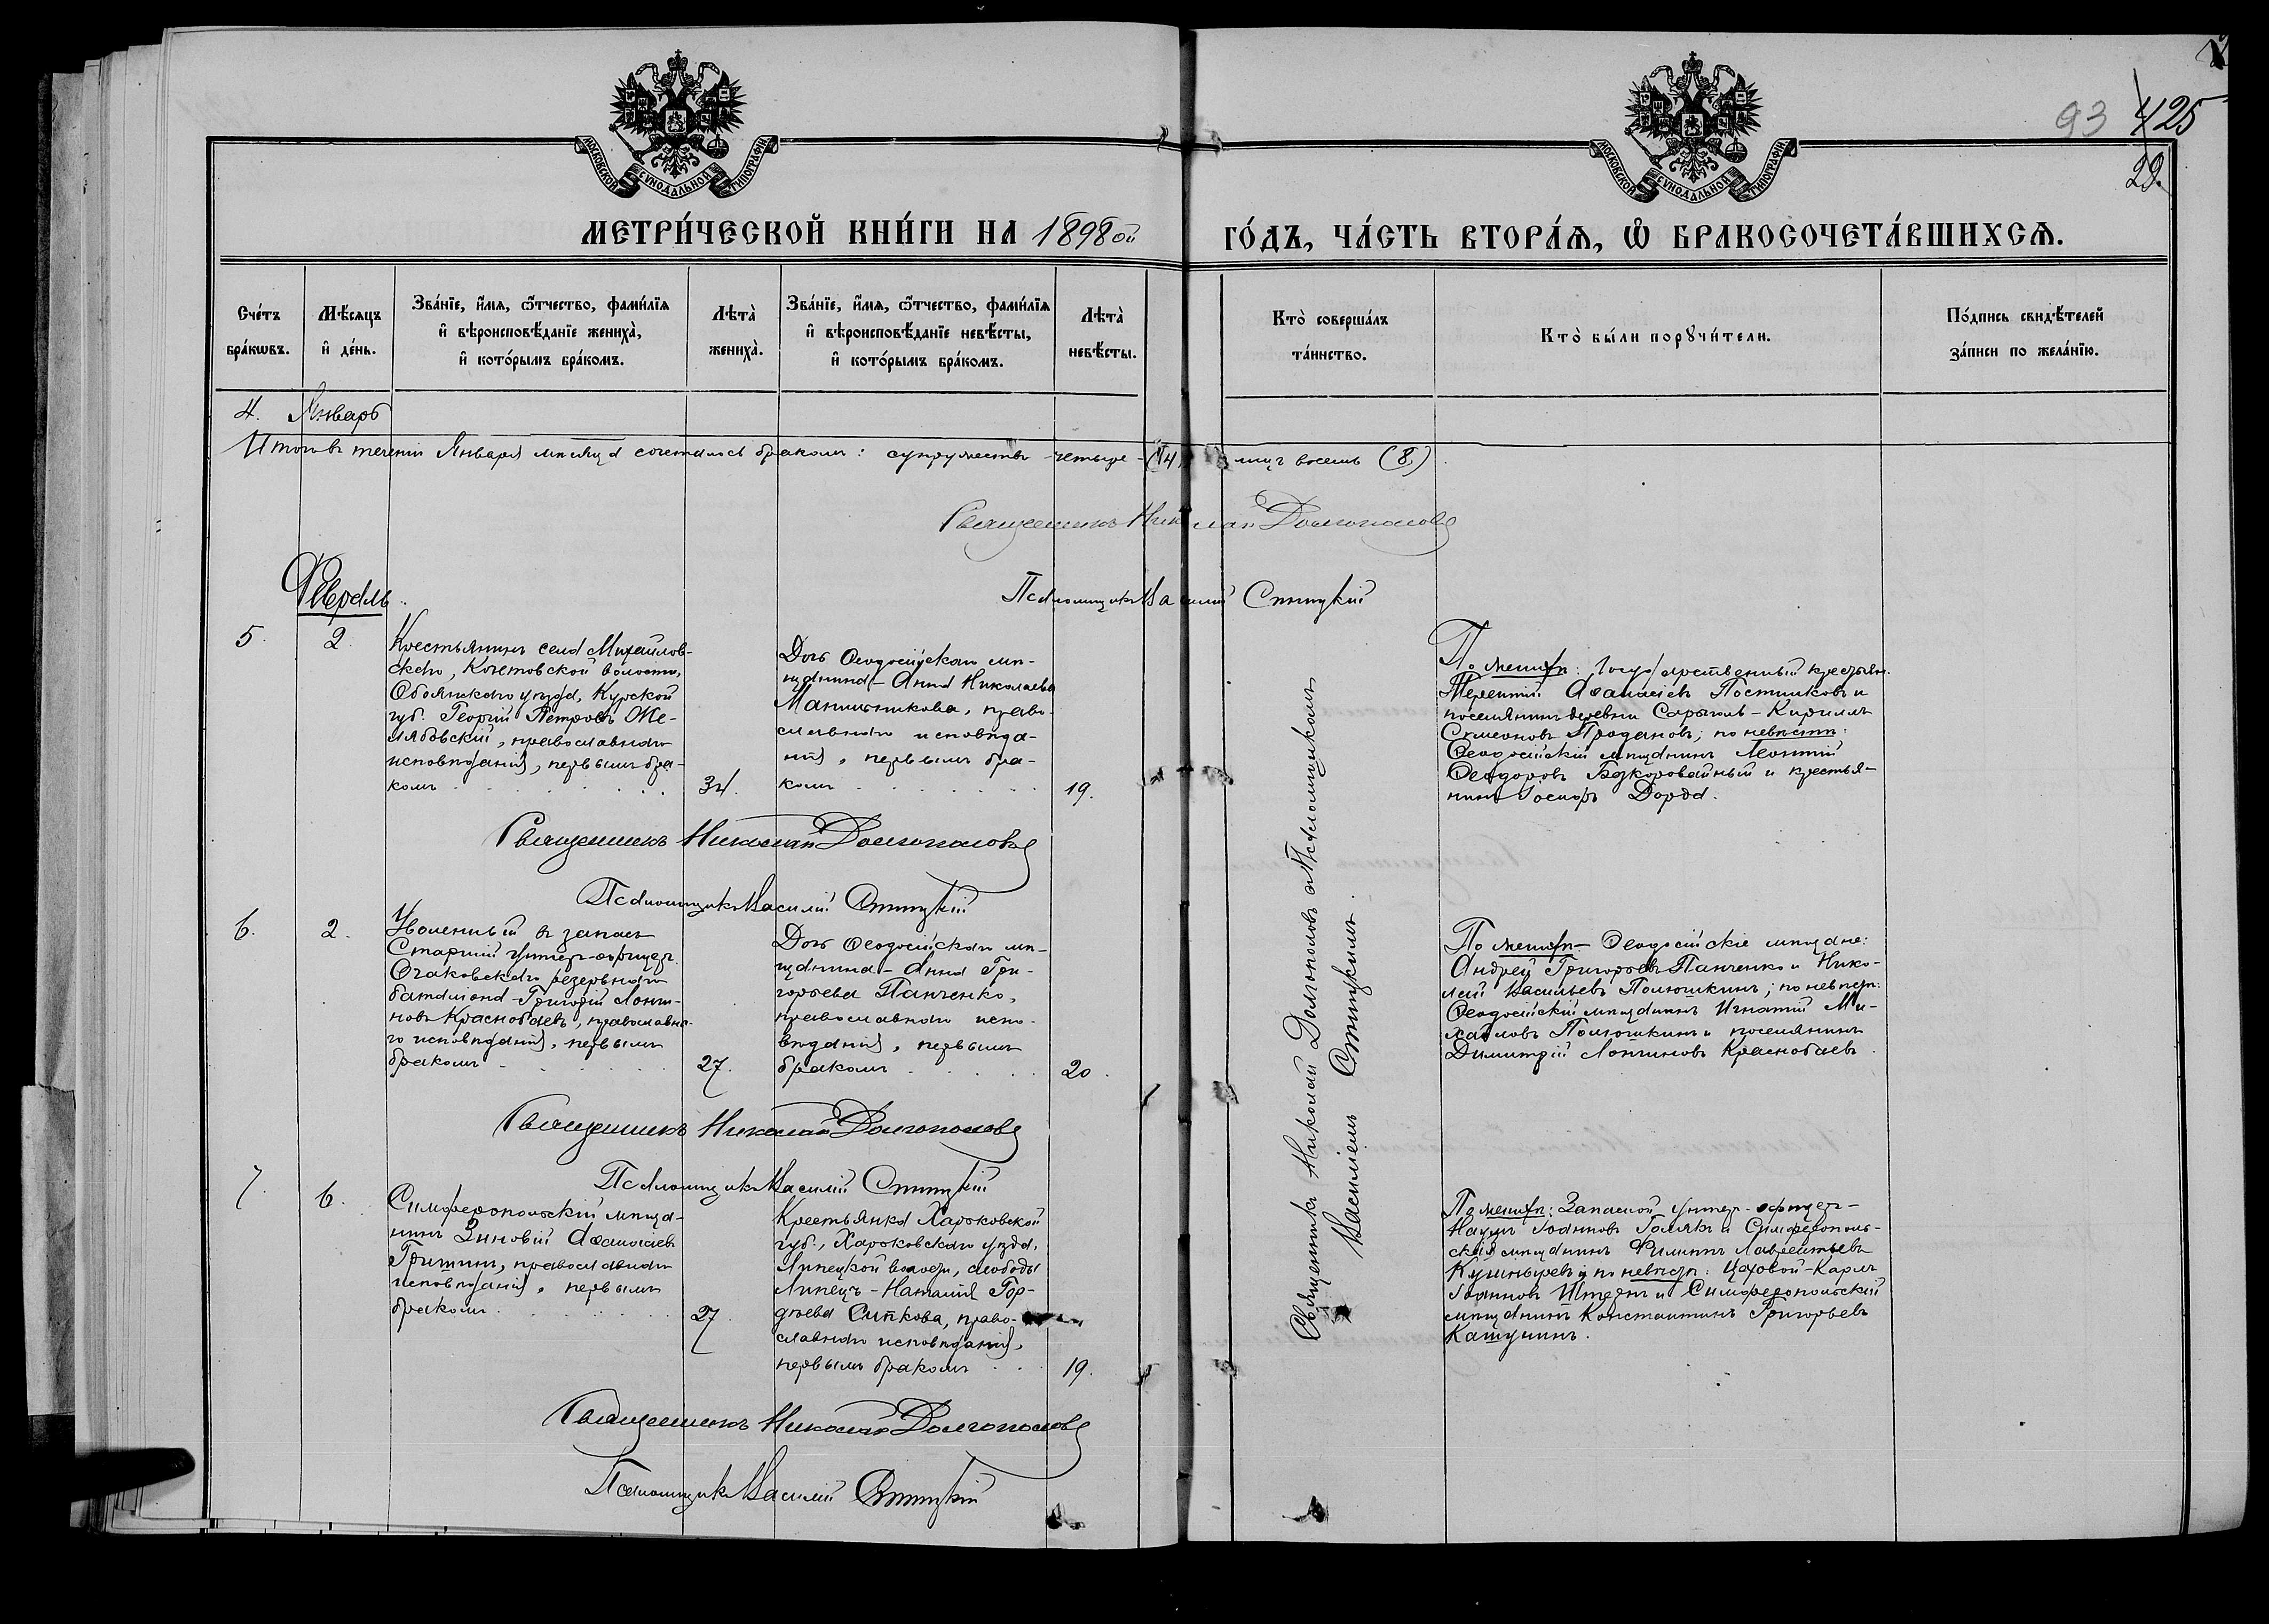 93 425
29.
МОСКОВСКОЙ СѴНОДАЛЬНОЙ ТИПОГРАФІИ
МОСКОВСКОЙ СѴНОДАЛЬНОЙ ТИПОГРАФІИ
МЕТРИ́ЧЕСКОЙ КНИ́ГИ НА 1898ой ГО́ДЪ, ЧА́СТЬ ВТОРА́Ѧ, Ѡ БРАКОСОЧЕТА́ВШИХСѦ.
Сче́тъ бра́кѡвъ.
Мѣ́сяцъ и҆ де́нь.
Зва́нїе, и҆́мѧ, ѻ҆́тчество, фами́лїѧ
и҆ вѣроисповѣ́данїе жениха̀,
и҆ кото́рымъ бра́комъ.
Лѣта̀ жениха̀.
Зва́нїе, и҆́мѧ, ѻ҆́тчество, фами́лїѧ
и҆ вѣроисповѣ́данїе невѣ́сты,
и҆ кото́рымъ бра́комъ.
Лѣта̀ невѣ́сты.
Кто̀ соверша́лъ та́инство.
Кто̀ бы́ли порꙋчи́тели.
По́дпись свидѣ́телей за́писи по жела́нїю.
4. Январь
Итого въ теченіи Января мѣсяца сочеталось бракомъ: супружествъ четыре (4) лицъ восемь (8).
Священникъ Николай Долгополовъ
Псаломщикъ Василій Ститцкій
Февраль
5.
2.
Крестьянинъ села Михайлов-
скаго, Кочетовской волости,
Обоянскаго уѣзда, Курской
губ. Георгій Петровъ Же-
лябовскій, православнаго
исповѣданія, первымъ бра-
комъ
34.
Дочь Ѳеодосійскаго мѣ-
щанина – Анна Николаева
Манильникова, право-
славнаго исповѣда-
нія, первымъ бра-
комъ
19.
По женихѣ: Государственный крестьян.
Терентій Аѳанасіевъ Постниковъ и
поселянинъ деревни Сарыголь – Кириллъ
Симеоновъ Продановъ; по невѣстѣ:
Ѳеодосійскій мѣщанинъ Леонтій
Ѳеодоровъ Бѣзкоровайный и крестья-
нинъ Іосифъ Дорда.
Священникъ Николай Долгополовъ
Псаломщикъ Василій Ститцкій
6.
2.
Уволенный въ запасъ
Старшій унтеръ-офицеръ
Очаковскаго резервнаго
баталіона – Григорій Логи-
новъ Краснобаевъ, православна-
го исповѣданія, первымъ
бракомъ
27.
Дочь Ѳеодосійскаго мѣ-
щанина – Анна Гри-
горьева Панченко,
православнаго испо-
вѣданія, первымъ
бракомъ
20.
По женихѣ – Ѳеодосійскіе мѣщане:
Андрей Григорьевъ Панченко и Нико-
лай Васильевъ Полюшкинъ; по невѣстѣ:
Ѳеодосійскій мѣщанинъ Игнатій Ми-
хайловъ Полюшкинъ и поселянинъ
Димитрій Логиновъ Краснобаевъ.
Священникъ Николай Долгополовъ
Псаломщикъ Василій Ститцкій
7.
6.
Симферопольскій мѣща-
нинъ Зиновій Аѳанасіевъ
Гришинъ, православнаго
исповѣданія, первымъ
бракомъ
27.
Крестьянка Харьковской
губ., Харьковскаго уѣзда,
Липецкой волости, слободы
Липецъ – Наталія Гор-
дѣева Ситкова, право-
славнаго исповѣданія,
первымъ бракомъ
19.
По женихѣ: Запасной унтеръ-офицеръ –
Наумъ Іоанновъ Голякъ и Симферополь-
скій мѣщанинъ Филиппъ Лаврентьевъ
Кушныревъ; по невѣстѣ: Цеховой – Карлъ
Іоанновъ Штернъ и Симферопольскій
мѣщанинъ Константинъ Григорьевъ
Кашунинъ.
Священникъ Николай Долгополовъ
Псаломщикъ Василій Ститцкій
Священникъ Николай Долгополовъ съ Псаломщикомъ
Василіемъ Ститцкимъ.